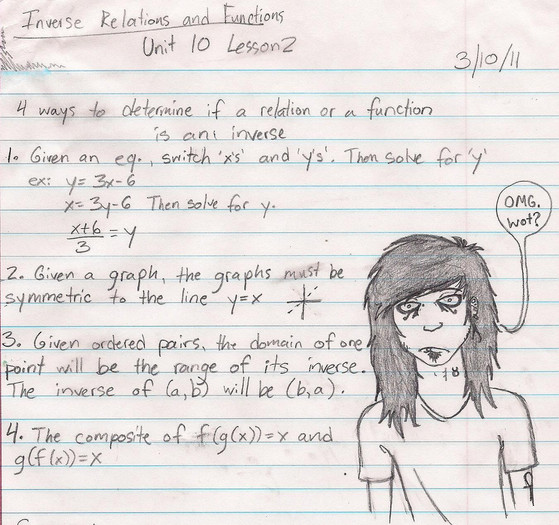 Inverse Relations and Functions
Unit 10 Lesson 2
3/10/11
4 ways to determine if a relation or a function
is an inverse
1. Given an eq., switch 'x's' and 'y's'. Then solve for 'y'
ex: y = 3x-6
x = 3y-6 Then solve for y.
x+6/3 = y
OMG.
wot?
2. Given a graph, the graphs must be
symmetric to the line y=x
3. Given ordered pairs, the domain of one
point will be the range of its inverse.
The inverse of (a,b) will be (b,a).
4. The composite of f(g(x))=x and
g(f(x))=x